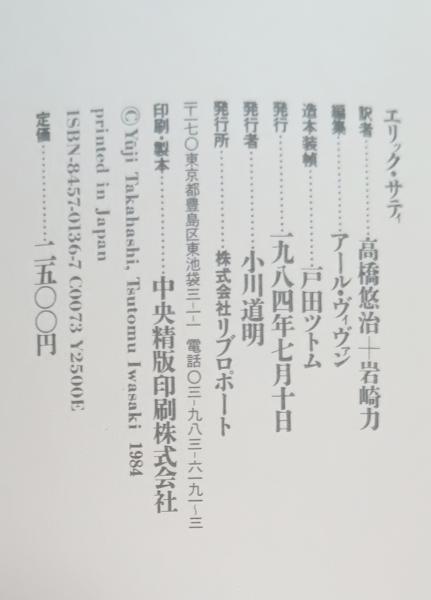 エリック・サティ
訳者…………高橋悠治＋岩崎力
編集…………アール・ヴィヴァン
造本装幀…………戸田ツトム
発行…………一九八四年七月十日
発行者…………小川道明
発行所…………株式会社リブロポート
〒一七〇 東京都豊島区東池袋三-一-一 電話〇三-九八三-六一九一〜三
印刷・製本…………中央精版印刷株式会社
©Yuji Takahashi, Tsutomu Iwasaki 1984
printed in Japan
ISBN-8457-0136-7 C0073 Y2500E
定価…………二五〇〇円